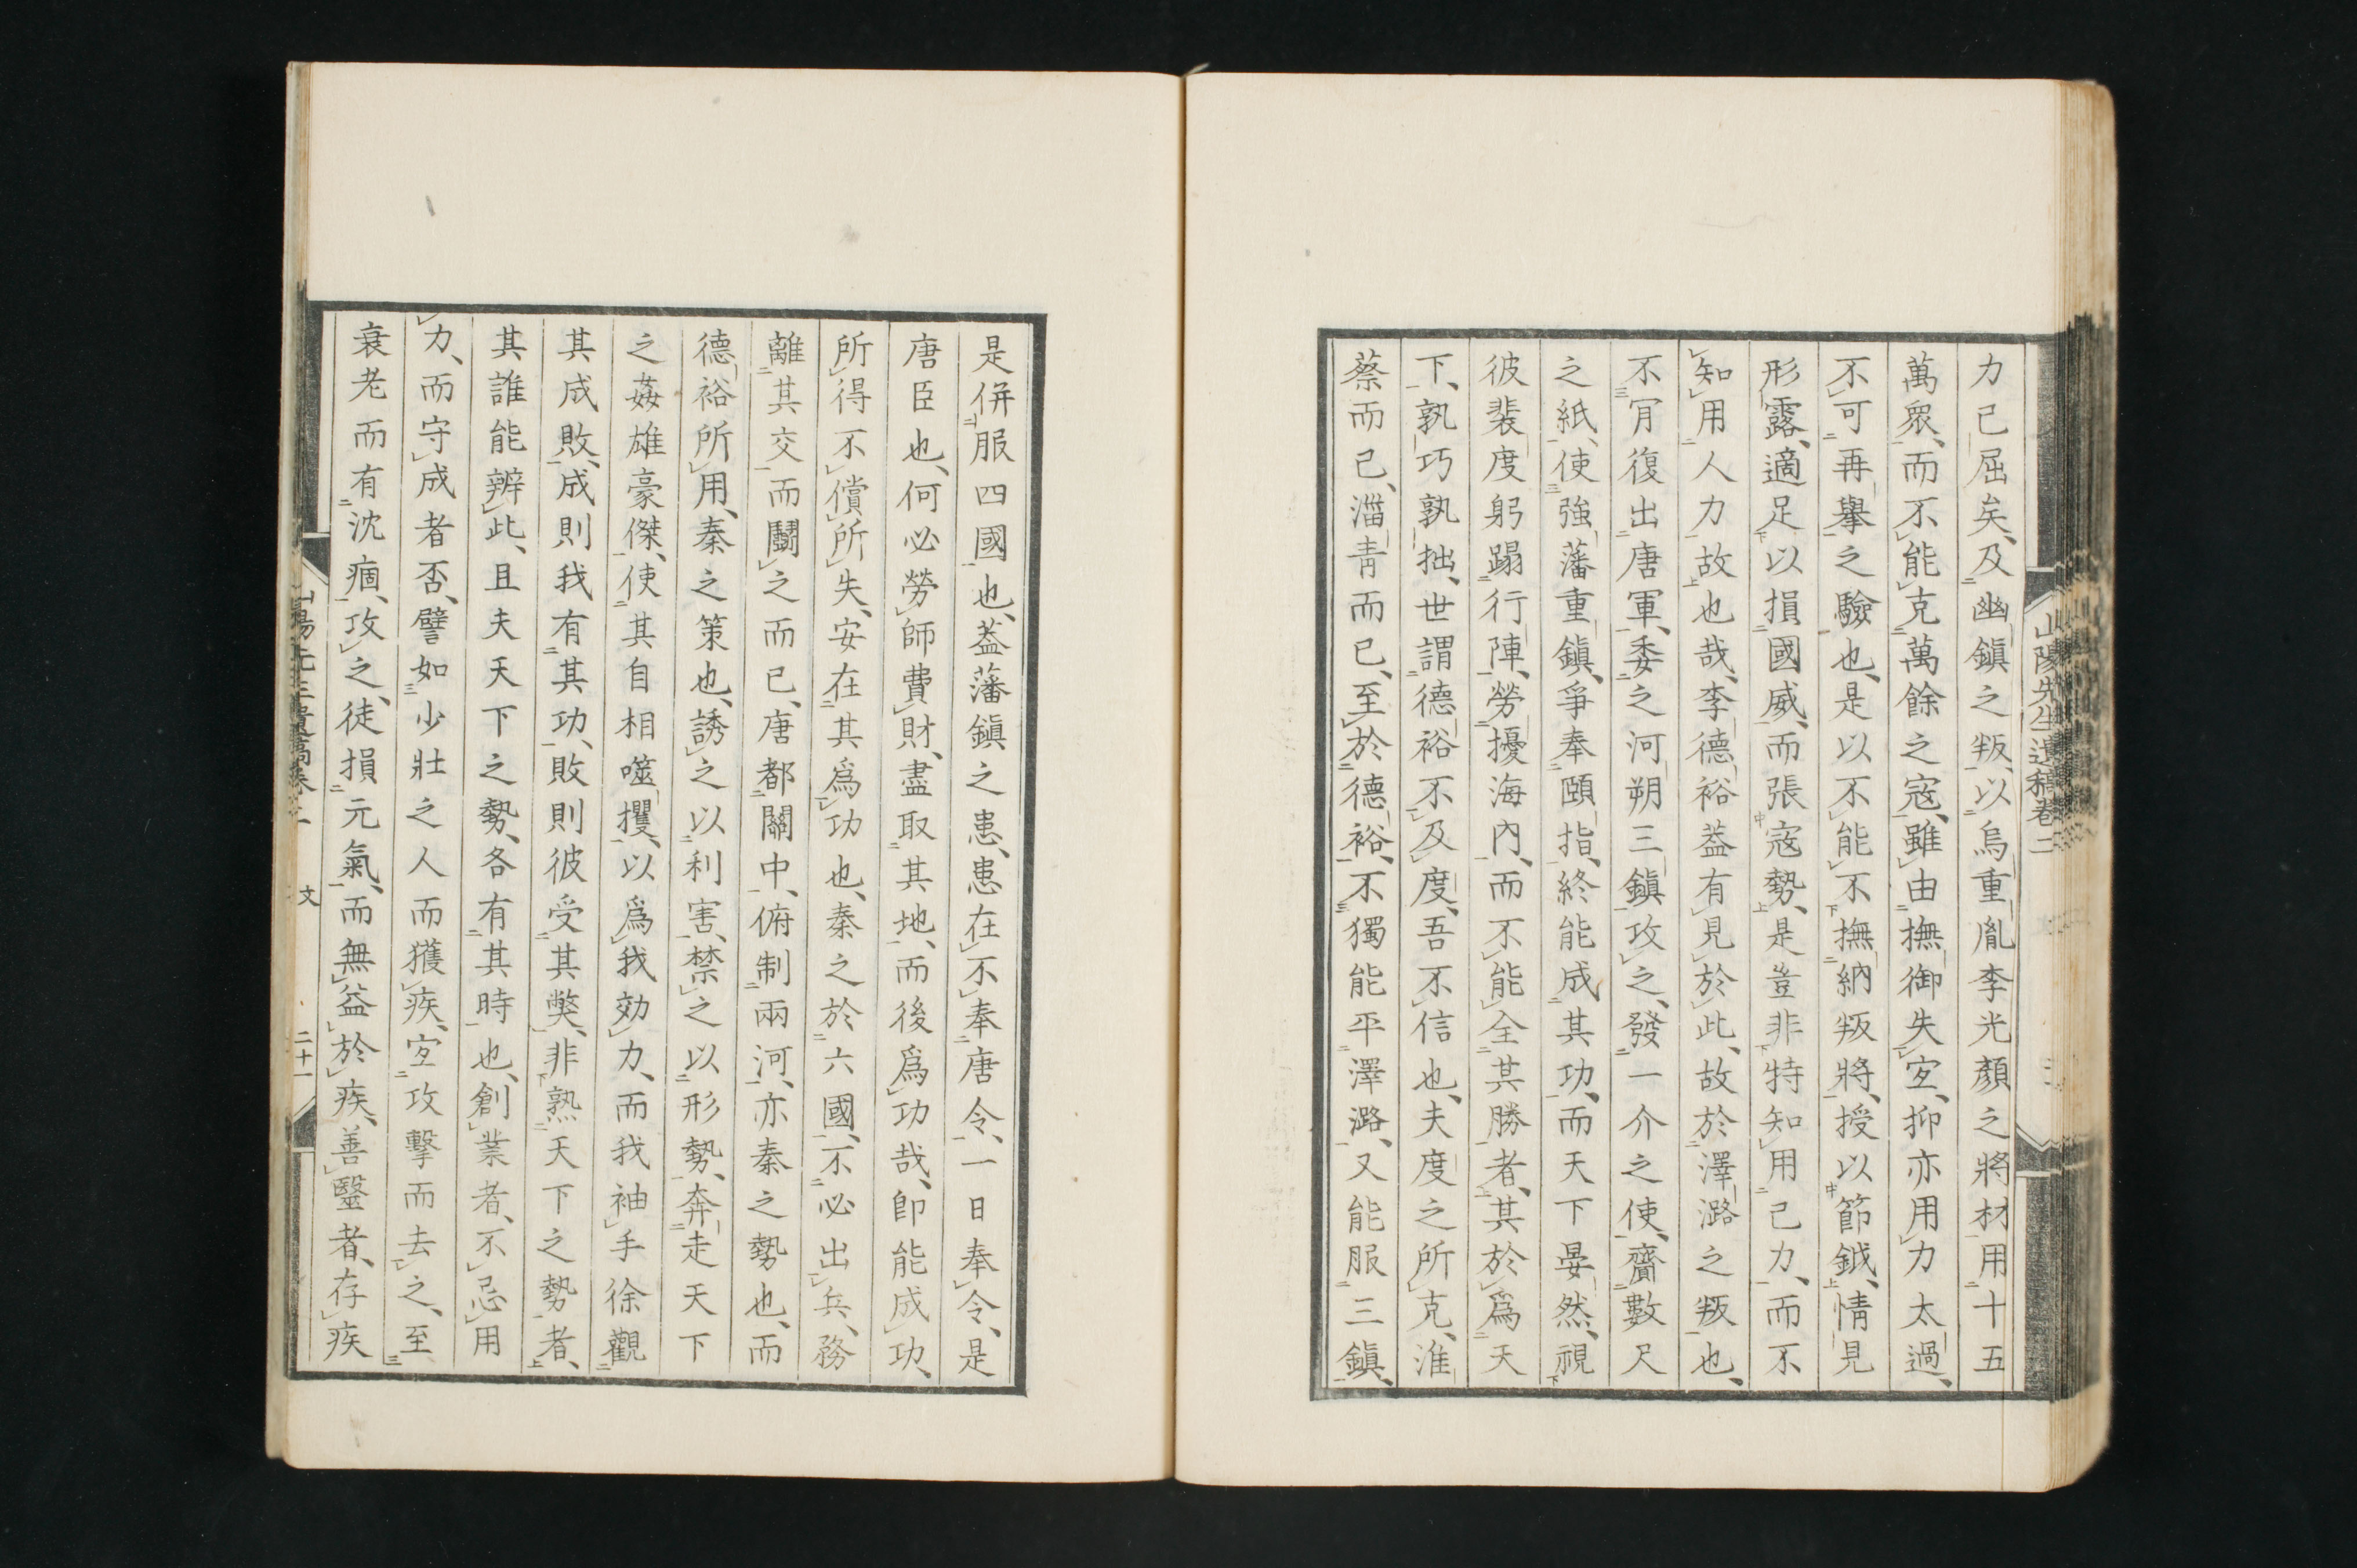 山陽先生遺稿卷二
力已屈矣、及幽鎭之叛、以烏重胤李光顏之將材用十五
萬衆、而不能克萬餘之寇、雖由撫御失宐、抑亦用力太過、
不可再擧之驗也、是以不能不撫納叛將、授以節鉞、情見
形露、適足以損國威、而張寇勢、是豈非特知用己力、而不
知用人力故也哉、李德裕葢有見於此、故於澤潞之叛也、
不肎復出唐軍、委之河朔三鎭攻之、發一介之使、齎數尺
之紙、使強藩重鎭、爭奉頤指、終能成其功、而天下晏然、視
彼裴度躬蹋行陣、勞擾海內、而不能全其勝者、其於爲天
下、孰巧孰拙、世謂德裕不及度、吾不信也、夫度之所克、淮
蔡而已、淄青而已、至於德裕、不獨能平澤潞、又能服三鎭、
是併服四國也、葢藩鎭之患、患在不奉唐令、一日奉令、是
唐臣也、何必勞師費財、盡取其地、而後爲功哉、卽能成功、
所得不償所失、安在其爲功也、秦之於六國、不必出兵、務
離其交、而鬭之而已、唐都關中、俯制兩河、亦秦之勢也、而
德裕所用、秦之策也、誘之以利害、禁之以形勢、奔走天下
之姦雄豪傑、使其自相噬攫、以爲我効力、而我袖手徐觀
其成敗、成則我有其功、敗則彼受其獘、非熟天下之勢者、
其誰能辨此、且夫天下之勢、各有其時也、創業者、不忌用
力、而守成者否、譬如少壯之人而獲疾、宐攻擊而去之、至
衰老而有沈痼、攻之、徒損元氣、而無益於疾、善醫者、存疾
文
二十一